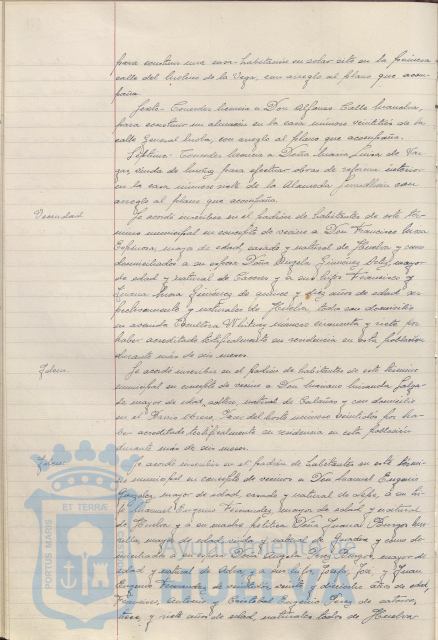 para construir una casa-habitación en solar sito en la primera
calle del de la Vega, con arreglo al plano que acom-
paña.
Sexto.- Conceder licencia a Don Alfonso Calle
para construir un almacén en la casa número veintitrés de la
calle General Mola, con arreglo al plano que acompaña.
Séptimo.- Conceder licencia a Doña
viuda de para efectuar obras de reforma interior
en la casa número siete de la Alameda Sundheim con
arreglo al plano que acompaña.
Vecindad. Se acordó inscribir en el padrón de habitantes de este tér-
mino municipal en concepto de vecino a Don Francisco
Espinosa, mayor de edad, casado y natural de Huelva y como
domiciliados a su esposa Doña Angela Giménez mayor
de edad y natural de y a sus hijos Francisco y
Giménez de quince y diez años de edad res-
pectivamente y naturales de Huelva, todos con domicilio
en avenida número cincuenta y siete por
haber acreditado testificalmente su residencia en esta población
durante más de seis meses.
Idem. Se acordó inscribir en el padrón de habitantes de este término
municipal en concepto de vecino a Don Mariano Miranda
mayor de edad, soltero, natural de Calañas y con domicilio
en el Barrio Obrero, número veintidós por ha-
ber acreditado testificalmente su residencia en esta población
durante más de seis meses.
Idem. Se acordó inscribir en el padrón de habitantes de este térmi-
no municipal en concepto de vecino a Don Manuel Eugenio
González, mayor de edad, casado y natural de Lepe, a su hi-
jo Manuel Eugenio Fernández, mayor de edad y natural
de Huelva y a su madre política Doña Borrego
mayor de edad, viuda y natural de y como do-
miciliados a Doña Angela Pérez Borrego, mayor de
edad y natural de a sus hijos Josefa, José, y Juan
Eugenio Fernández, de veintidós, veinte y dieciséis años de edad,
Francisco, Antonio y Cristóbal Eugenio Pérez de catorce,
trece y siete años de edad, naturales todos de Huelva
PORTUS MARIS
ET TERRAE
Ayuntamiento de
HUELVA